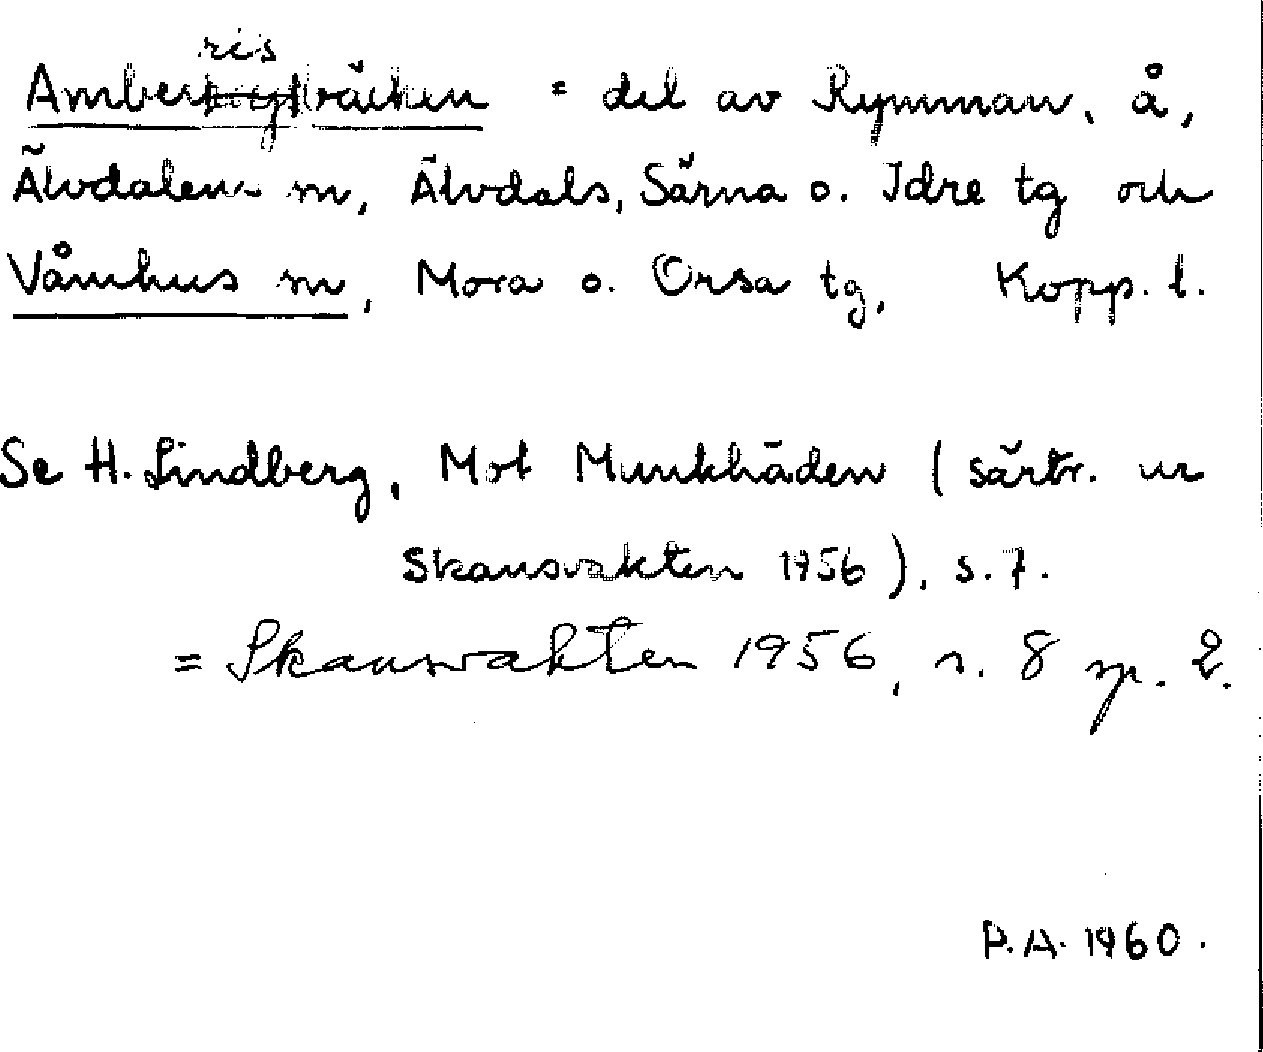 Amberrisbäcken = del av Rymman, å,
Älvdalens sn, Älvdals, Särna o. Idre tg och
Våmhus sn, Mora o. Orsa tg, Kopp. l.
Se H. Lindberg, Mot Munkhäden (särtr. ur
Skansvakten 1956), s. 7.
= Skansvakten 1956, s. 8 sp. 2.
P.A. 1960.